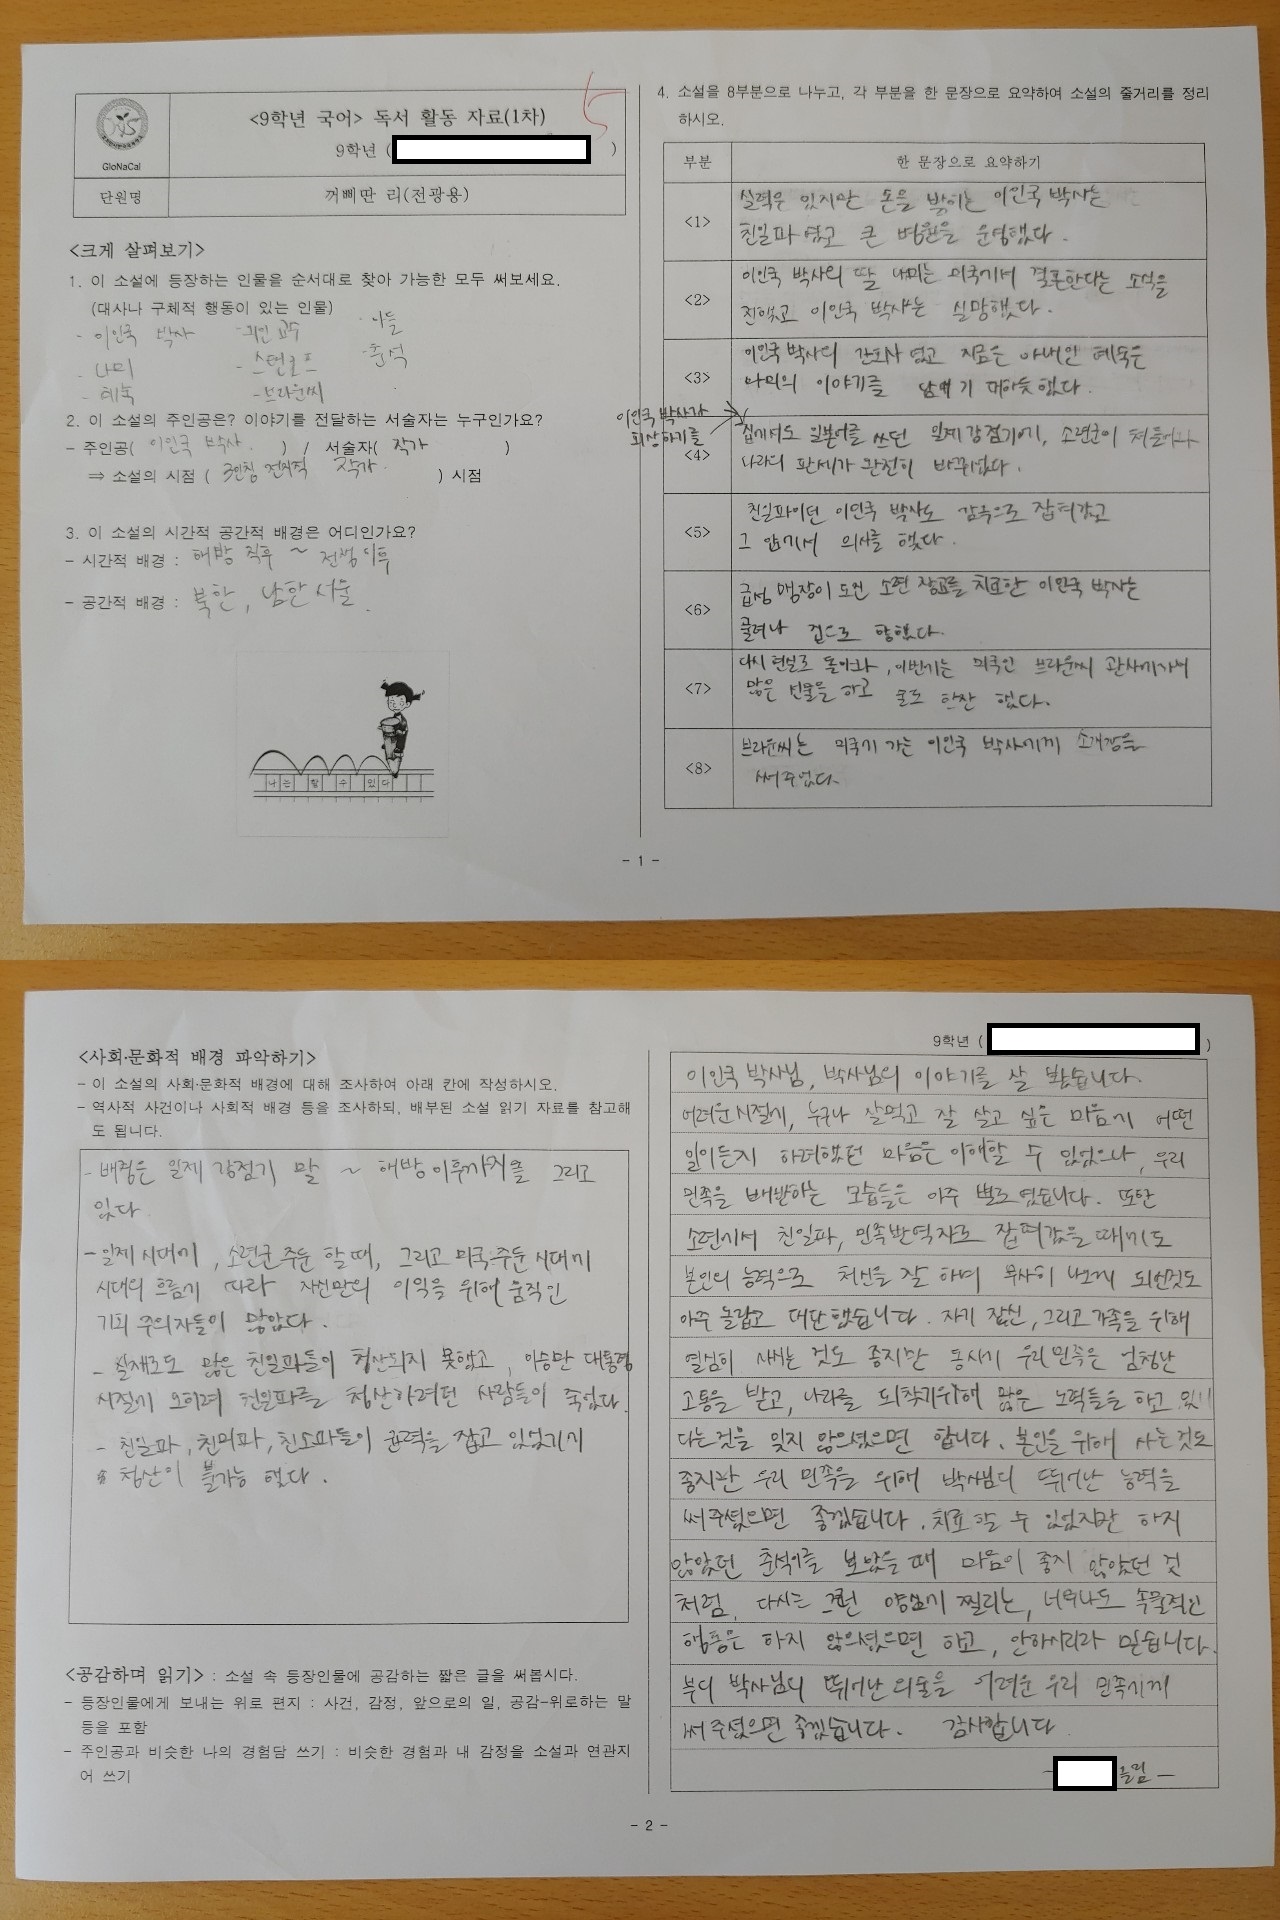 GloNaCal
<9학년 국어> 독서 활동 자료(1차)
5
9학년 (                    )
단원명
꺼삐딴 리(전광용)
<크게 살펴보기>
1. 이 소설에 등장하는 인물을 순서대로 찾아 가능한 모두 써보세요.
(대사나 구체적 행동이 있는 인물)
- 이인국 박사
- 나미
- 혜숙
- 외인 교수
- 스텐코프
- 브라운씨
· 아들
· 춘석
2. 이 소설의 주인공은? 이야기를 전달하는 서술자는 누구인가요?
- 주인공( 이인국 박사 ) / 서술자( 작가 )
⇒ 소설의 시점 ( 3인칭 전지적 작가 ) 시점
3. 이 소설의 시간적 공간적 배경은 어디인가요?
- 시간적 배경 : 해방 직후 ~ 전쟁 이후
- 공간적 배경 : 북한, 남한 서울.
나는 할 수 있다
4. 소설을 8부분으로 나누고, 각 부분을 한 문장으로 요약하여 소설의 줄거리를 정리
하시오.
부분
한 문장으로 요약하기
<1>
실력은 있지만 돈을 밝히는 이인국 박사는
친일파 였고 큰 병원을 운영했다.
<2>
이인국 박사의 딸 나미는 미국에서 결혼한다는 소식을
전했고 이인국 박사는 실망했다.
<3>
이인국 박사의 간호사 였고 지금은 아내인 혜숙은
나미의 이야기를 남얘기 대하듯 했다.
이인국 박사가
회상하기를
<4>
집에서도 일본어를 쓰던 일제강점기에, 소련군이 쳐들어와
나라의 판세가 완전히 바뀌었다.
<5>
친일파이던 이인국 박사도 감옥으로 잡혀갔고
그 안에서 의사를 했다.
<6>
급성 맹장이 도진 소련 장교를 치료한 이인국 박사는
풀려나 집으로 향했다.
<7>
다시 현실로 돌아와, 이번에는 미국인 브라운씨 관사에가서
많은 선물을 하고 술도 한잔 했다.
<8>
브라운씨는 미국에 가는 이인국 박사에게 소개장을
써 주었다.
- 1 -
<사회·문화적 배경 파악하기>
- 이 소설의 사회·문화적 배경에 대해 조사하여 아래 칸에 작성하시오.
- 역사적 사건이나 사회적 배경 등을 조사하되, 배부된 소설 읽기 자료를 참고해
도 됩니다.
- 배경은 일제 강점기 말 ~ 해방 이후까지를 그리고
있다
- 일제 시대에, 소련군 주둔 할 때, 그리고 미국 주둔 시대에
시대의 흐름에 따라 자신만의 이익을 위해 움직인
기회 주의자들이 많았다.
- 실제로도 많은 친일파들이 청산되지 못했고, 이승만 대통령
시절에 오히려 친일파를 청산하려던 사람들이 죽었다.
- 친일파, 친미파, 친소파들이 권력을 잡고 있었기에
청산이 불가능 했다.
<공감하며 읽기> : 소설 속 등장인물에 공감하는 짧은 글을 써봅시다.
- 등장인물에게 보내는 위로 편지 : 사건, 감정, 앞으로의 일, 공감-위로하는 말
등을 포함
- 주인공과 비슷한 나의 경험담 쓰기 : 비슷한 경험과 내 감정을 소설과 연관지
어 쓰기
9학년 (                    )
이인국 박사님, 박사님의 이야기를 잘 봤습니다.
어려운 시절에, 누구나 잘먹고 잘 살고 싶은 마음에 어떤
일이든지 하려했던 마음은 이해할 수 있었으나, 우리
민족을 배반하는 모습들은 아주 별로였습니다. 또한
소련에서 친일파, 민족반역자로 잡혀갔을 때에도
본인의 능력으로 처신을 잘 하며 무사히 나오게 되신것도
아주 놀랍고 대단했습니다. 자기 자신, 그리고 가족을 위해
열심히 사시는 것도 좋지만 동시에 우리 민족은 엄청난
고통을 받고, 나라를 되찾기위해 많은 노력들을 하고 있
다는것을 잊지 않으셨으면 합니다. 본인을 위해 사는것도
좋지만 우리 민족을 위해 박사님의 뛰어난 능력을
써주셨으면 좋겠습니다. 치료할 수 있었지만 하지
않았던 춘석이를 보았을 때 마음이 좋지 않았던 것
처럼, 다시는 그런 양심에 찔리는, 너무나도 속물적인
행동은 하지 않으셨으면 하고, 안하시리라 믿습니다.
부디 박사님의 뛰어난 의술을 어려운 우리 민족에게
써 주셨으면 좋겠습니다. 감사합니다.
- 올림 -
- 2 -